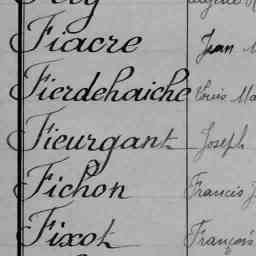 Fiacre Jean
Fierdehaiche Louis Ma
Fieurgant Joseph
Fichon Francis J
Fixot François